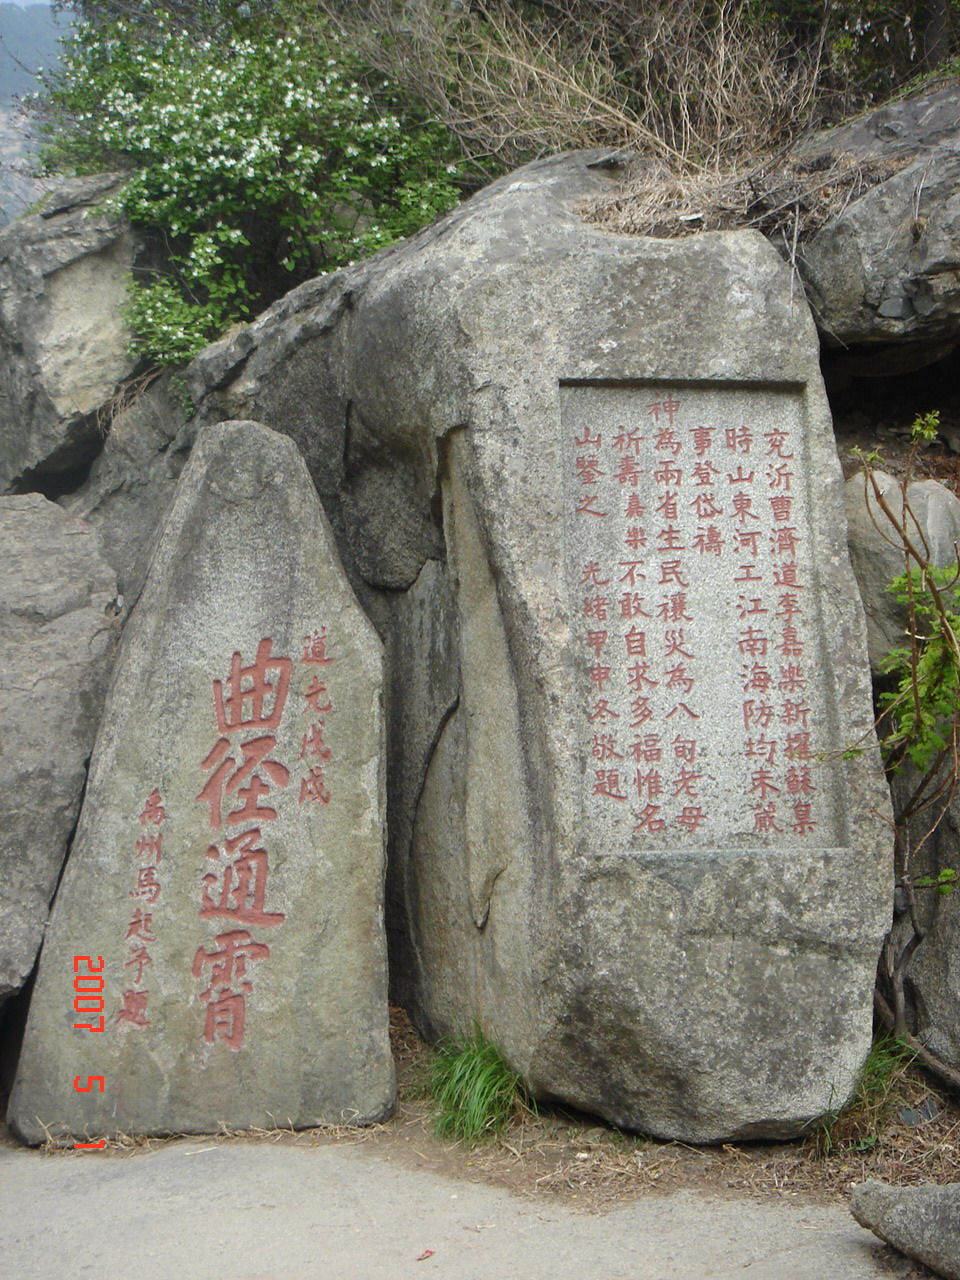 兖沂曹濟道李嘉樂新擢蘇臬
時山東河工江南海防均未蕆
事登岱禱
神為兩省生民禳災為八旬老母
祈壽嘉樂不敢自求多福惟名
山鑒之 光緒甲申冬敬題
道光戊戌
曲徑通霄
禹州馬起予題
2007 5 1